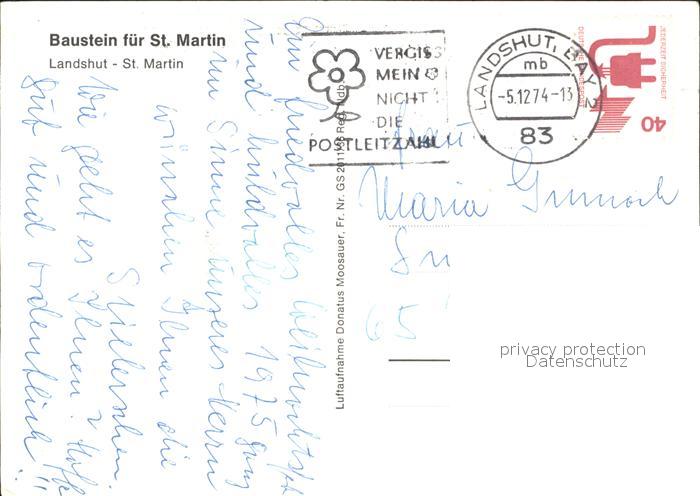 Baustein für St. Martin
Landshut - St. Martin
VERGIS
MEIN
NICHT
DIE
POSTLEITZAHL
LANDSHUT, BAY 2
mb
-5.12.74-13
83
JEDERZEIT SICHERHEIT
DEUTSCHE BUNDESPOST
40
Luftaufnahme Donatus Moosauer, Fr. Nr. GS 2011/36 Reg. Ndb.
Ein friedvolles Weihnachtsfest
und huldvolles 1975 ganz
im Sinne unseres Herrn
wünschen Ihnen die
Wie geht es Ihnen? Hoffe
gut und ordentlich!!
Frau
Maria
65
privacy protection
Datenschutz